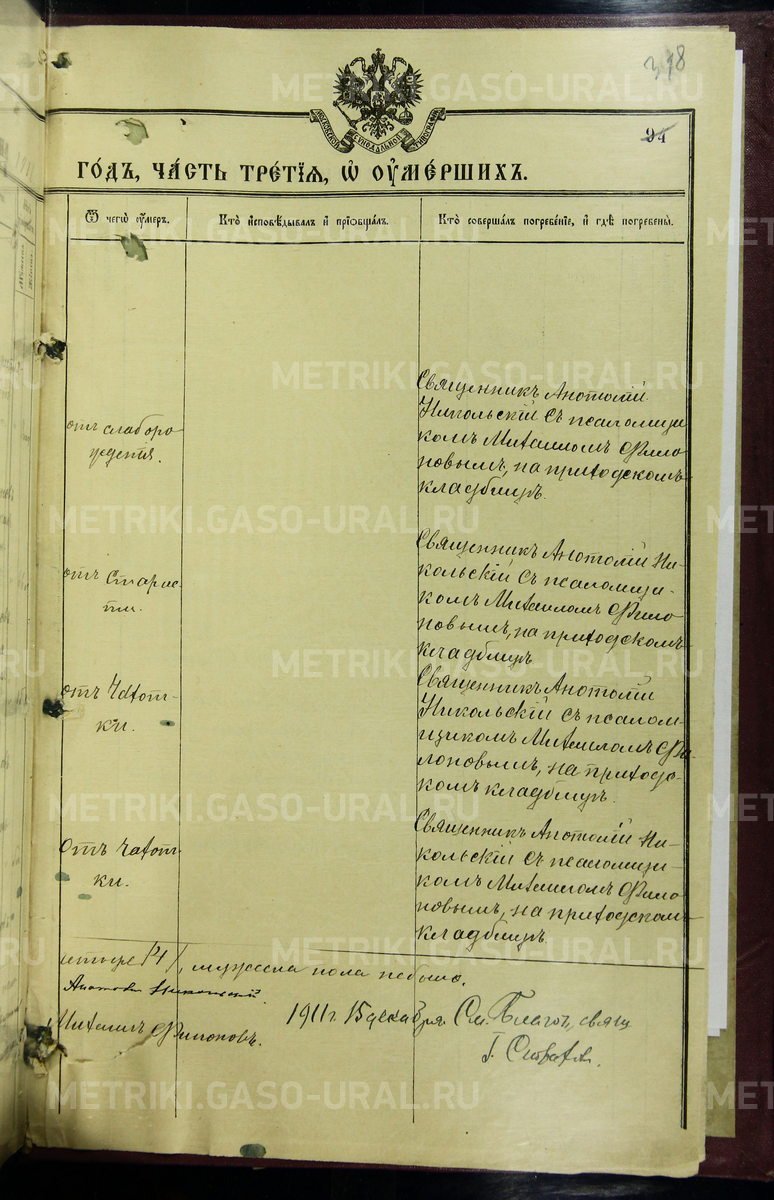 398
МОСКОВСКОЙ СѴНОДАЛЬНОЙ ТИПОГРАФІИ
94
ГО́ДЪ, ЧА́СТЬ ТРЕ́ТІѦ, Ѡ ОУМЕ́РШИХЪ.
Ѿ чегѡ̀ оу́меръ.
Кто̀ и҆сповѣ́дывалъ и҆ прїѡбща́лъ.
Кто̀ соверша́лъ погребе́нїе, и҆ гдѣ̀ погребены̀.
отъ слаборо
жденія.
Священникъ Анотолій
Никольскій съ псаломщи
комъ Михаиломъ Фило
новымъ, на приходскомъ
кладбищѣ.
отъ старос-
ти.
Священникъ Анотолій Ни-
кольскій съ псаломщи-
комъ Михаиломъ Фило
новымъ, на приходскомъ
кладбищѣ
отъ Чахот-
ки.
Священникъ Анотолій
Никольскій съ псалом-
щикомъ Михаиломъ Фи-
лоновымъ, на приход-
скомъ кладбищѣ.
Отъ чахот-
ки.
Священникъ Анотолій Ни-
кольскій съ псаломщи-
комъ Михаиломъ Фило
новымъ, на приходскомъ
кладбищѣ
четыре /4/, мужеска пола небыло.
Никольскій.
Михаилъ Филоновъ.
1911 г. 15 декабря. Благоч. свящ
І.
METRIKI.GASO-URAL.RU